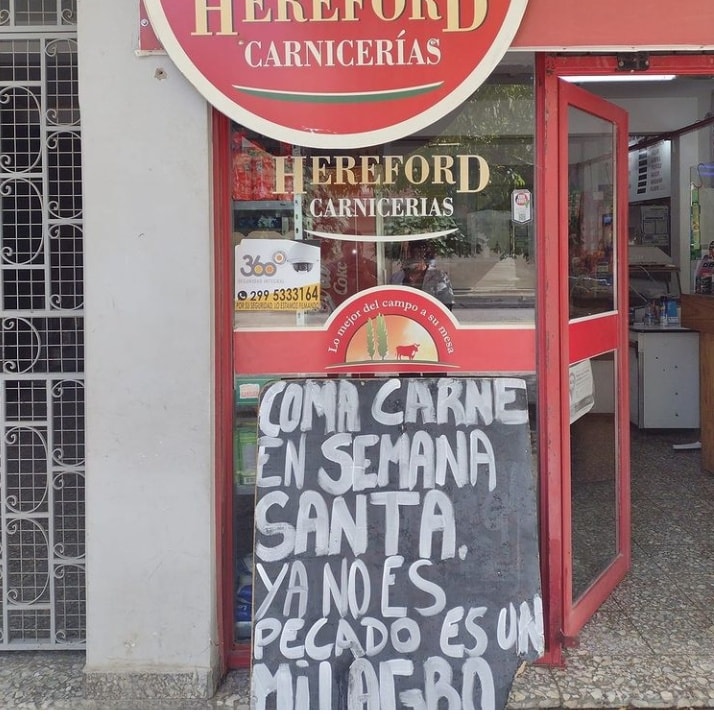 HEREFORD
CARNICERÍAS
HEREFORD
CARNICERIAS
360°
299 5333164
POR SU SEGURIDAD, LO ESTAMOS FILMANDO
Lo mejor del campo a su mesa
COMA CARNE
EN SEMANA
SANTA.
YA NO ES
PECADO ES UN
MILAGRO